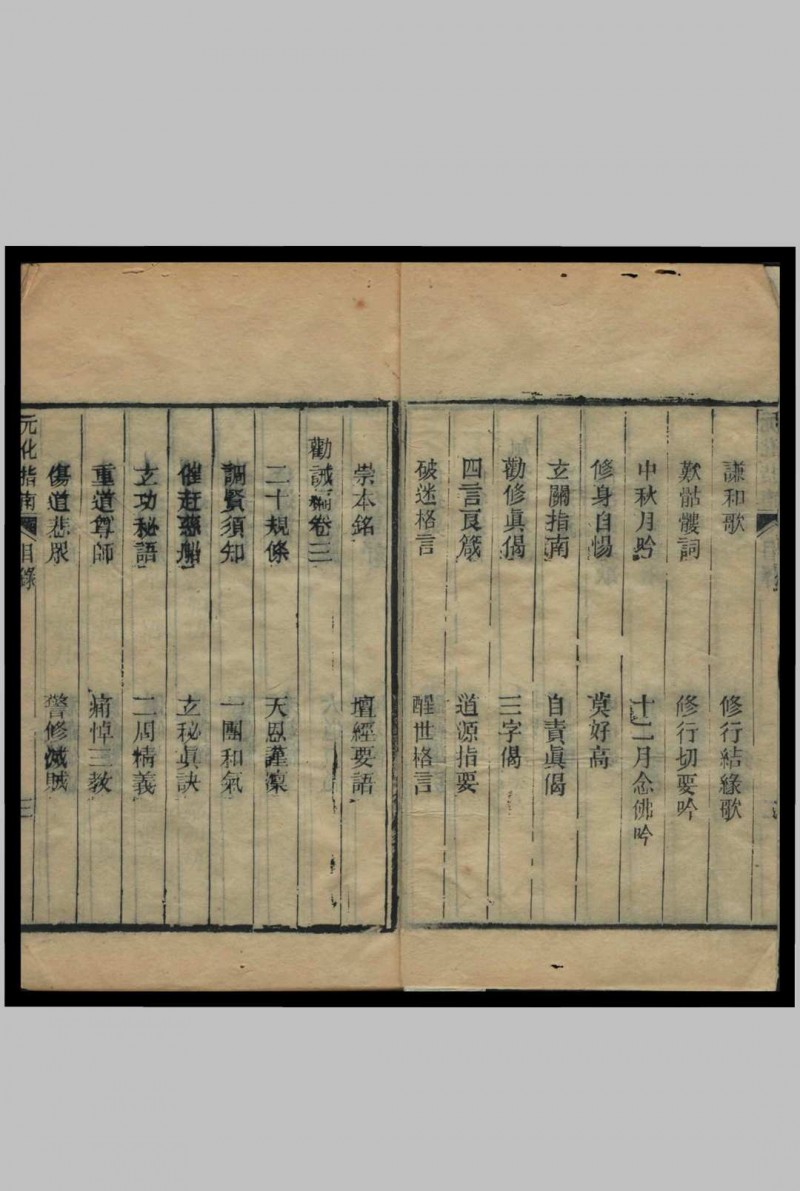 謙和歌　修行結緣歌
歎骷髏詞　修行切要吟
中秋月吟　十二月念佛吟
修身自惕　莫好高
玄關指南　自責眞偈
勸修眞偈　三字偈
四言良箴　道源指要
破迷格言　醒世格言
崇本銘　壇經要語
勸誡編卷三
二十規條　天恩謹凜
調賢須知　一團和氣
催赶慈船　立秘眞訣
玄功秘語　二周精義
重道尊師　痛悼三教
傷道悲眾　警修滅賊
元化指南　目錄　三